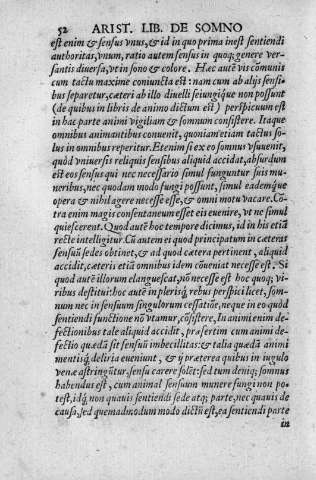 52 ARIST. LIB. DE SOMNO
est enim & sensus vnus, & id in quo prima inest sentiendi
authoritas, vnum, ratio autem sensus in quoq; genere ver-
santis diuersa, vt in sono & colore. Hæc autē vis cōmunis
cum tactu maxime coniuncta est: nam cum ab alijs sensi-
bus separetur, cæteri ab illo diuelli seiungiq́ue non possunt
(de quibus in libris de animo dictum est) perspicuum est
in hac parte animi vigiliam & somnum consistere. Itaque
omnibus animantibus conuenit, quoniam etiam tactus so-
lus in omnibus reperitur. Etenim si ex eo somnus vsuuenit,
quòd vniuersis reliquis sensibus aliquid accidat, absurdum
est eos sensus qui nec necessario simul funguntur suis mu-
neribus, nec quodam modo fungi possunt, simul eademq́ue
opera & nihil agere necesse esse, & omni motu vacare. Cō-
tra enim magis consentaneum esset eis euenire, vt ne simul
quiescerent. Quod autē hoc tempore dicimus, id in his etiā
recte intelligitur. Cū autem ei quod principatum in cæteras
sensuū sedes obtinet, & ad quod cætera pertinent, aliquid
accidit, cæteris etiā omnibus idem cōueniat necesse est. Si
quid autē illorum elanguescat, nō necesse est hoc quoq; vi-
ribus destitui: hoc autē in plerisq́; rebus perspici licet, som-
num nec in sensuum singulorum cessatiōe, neque in eo quòd
sentiendi functione nō vtamur, cōsistere. In animi enim de-
fectionibus tale aliquid accidit, præsertim cum animi de-
fectio quædā sit sensuū imbecillitas: & talia quædā animi
mentisq́; deliria eueniunt, & ij præterea quibus in iugulo
venæ astringūtur, sensu carere solēt: sed tum deniq; somnus
habendus est, cum animal sensuum munere fungi non po-
test, idq́; non quauis sentiendi sede atq; parte, nec quauis de
causa, sed quemadmodum modo dictū est, ea sentiendi parte
in